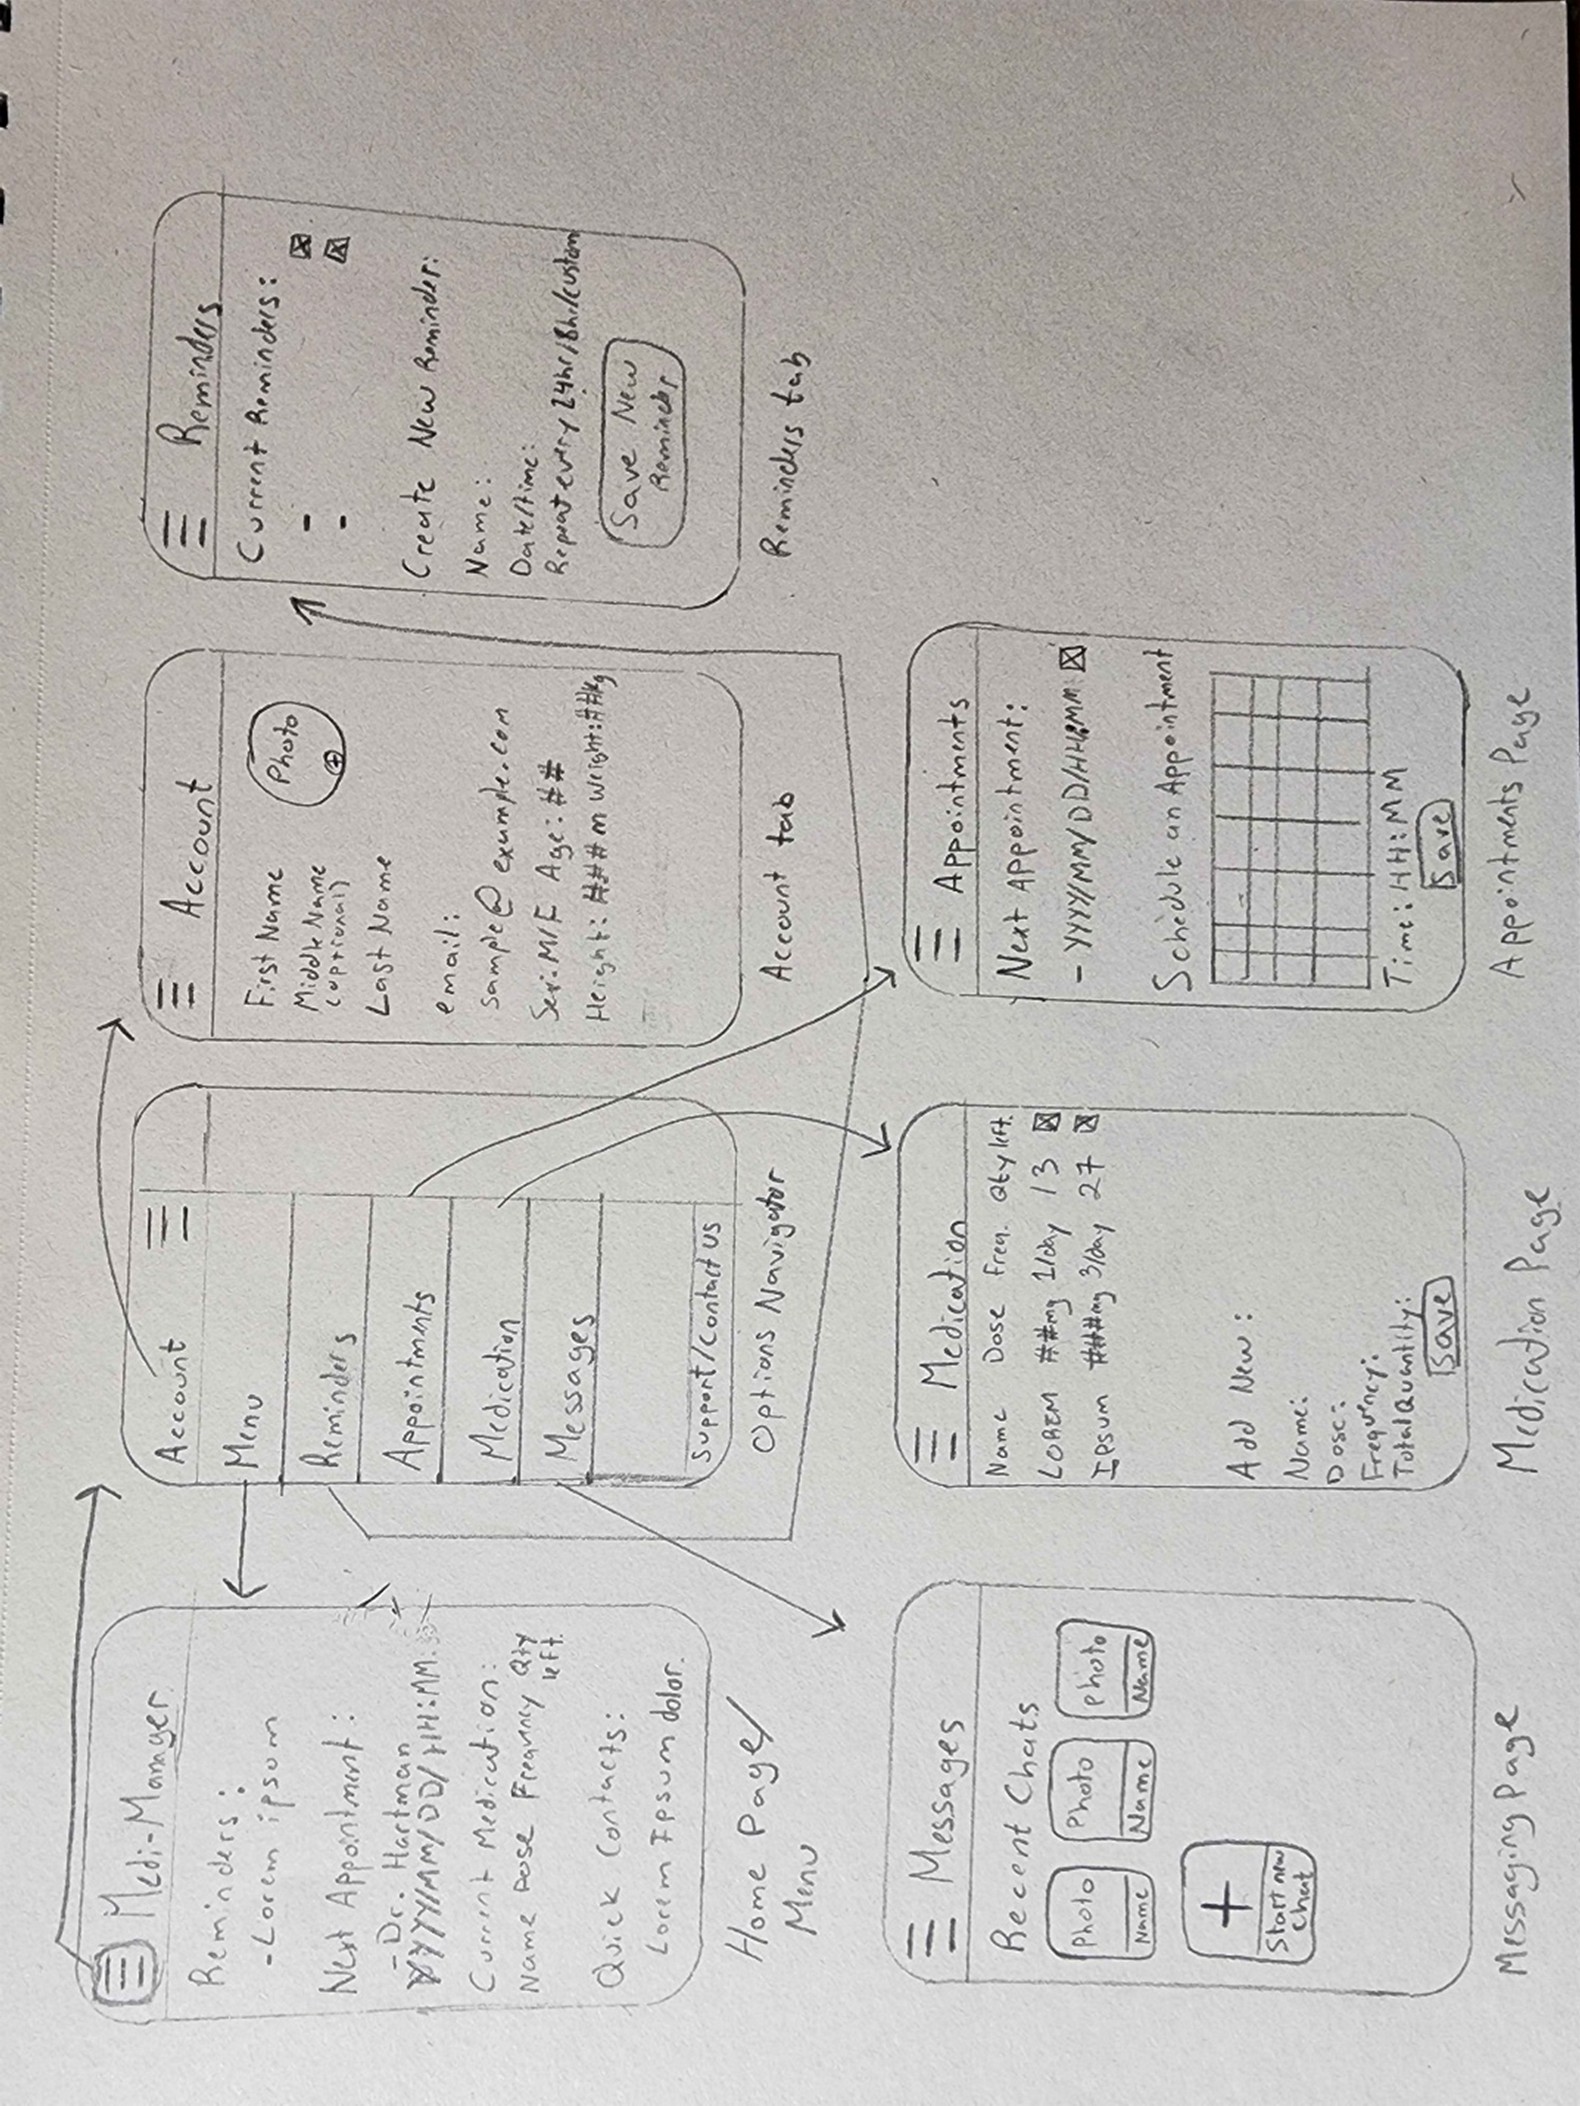 Medi-Manager
Reminders:
-Lorem ipsum
Next Appointment:
-Dr. Hartman
YYYY/MM/DD/HH:MM
Current Medication:
Name Dose Frequency Qty
left.
Quick Contacts:
Lorem Ipsum dolor.
Home Page/
Menu
Account
Menu
Reminders
Appointments
Medication
Messages
Support/Contact us
Options Navigator
Account
First Name
Middle Name
(optional)
Last Name
Photo
+
email:
sample@example.com
Sex: M/F Age: ##
Height: ###m Weight: ##kg
Account tab
Reminders
Current Reminders:
-
-
Create New Reminder:
Name:
Date/time:
Repeat every 24hr/8hr/custom
Save New
Reminder
Reminders tab
Messages
Recent Chats
Photo Photo photo
Name Name Name
+
Start new
Chat
Messaging Page
Medication
Name Dose Freq. Qty left.
LOREM ##mg 1/day 13
Ipsum ###mg 3/day 27
Add New:
Name:
Dose:
Frequency:
Total Quantity:
Save
Medication Page
Appointments
Next Appointment:
- YYYY/MM/DD/HH:MM
Schedule an Appointment
Time: HH:MM
Save
Appointments Page